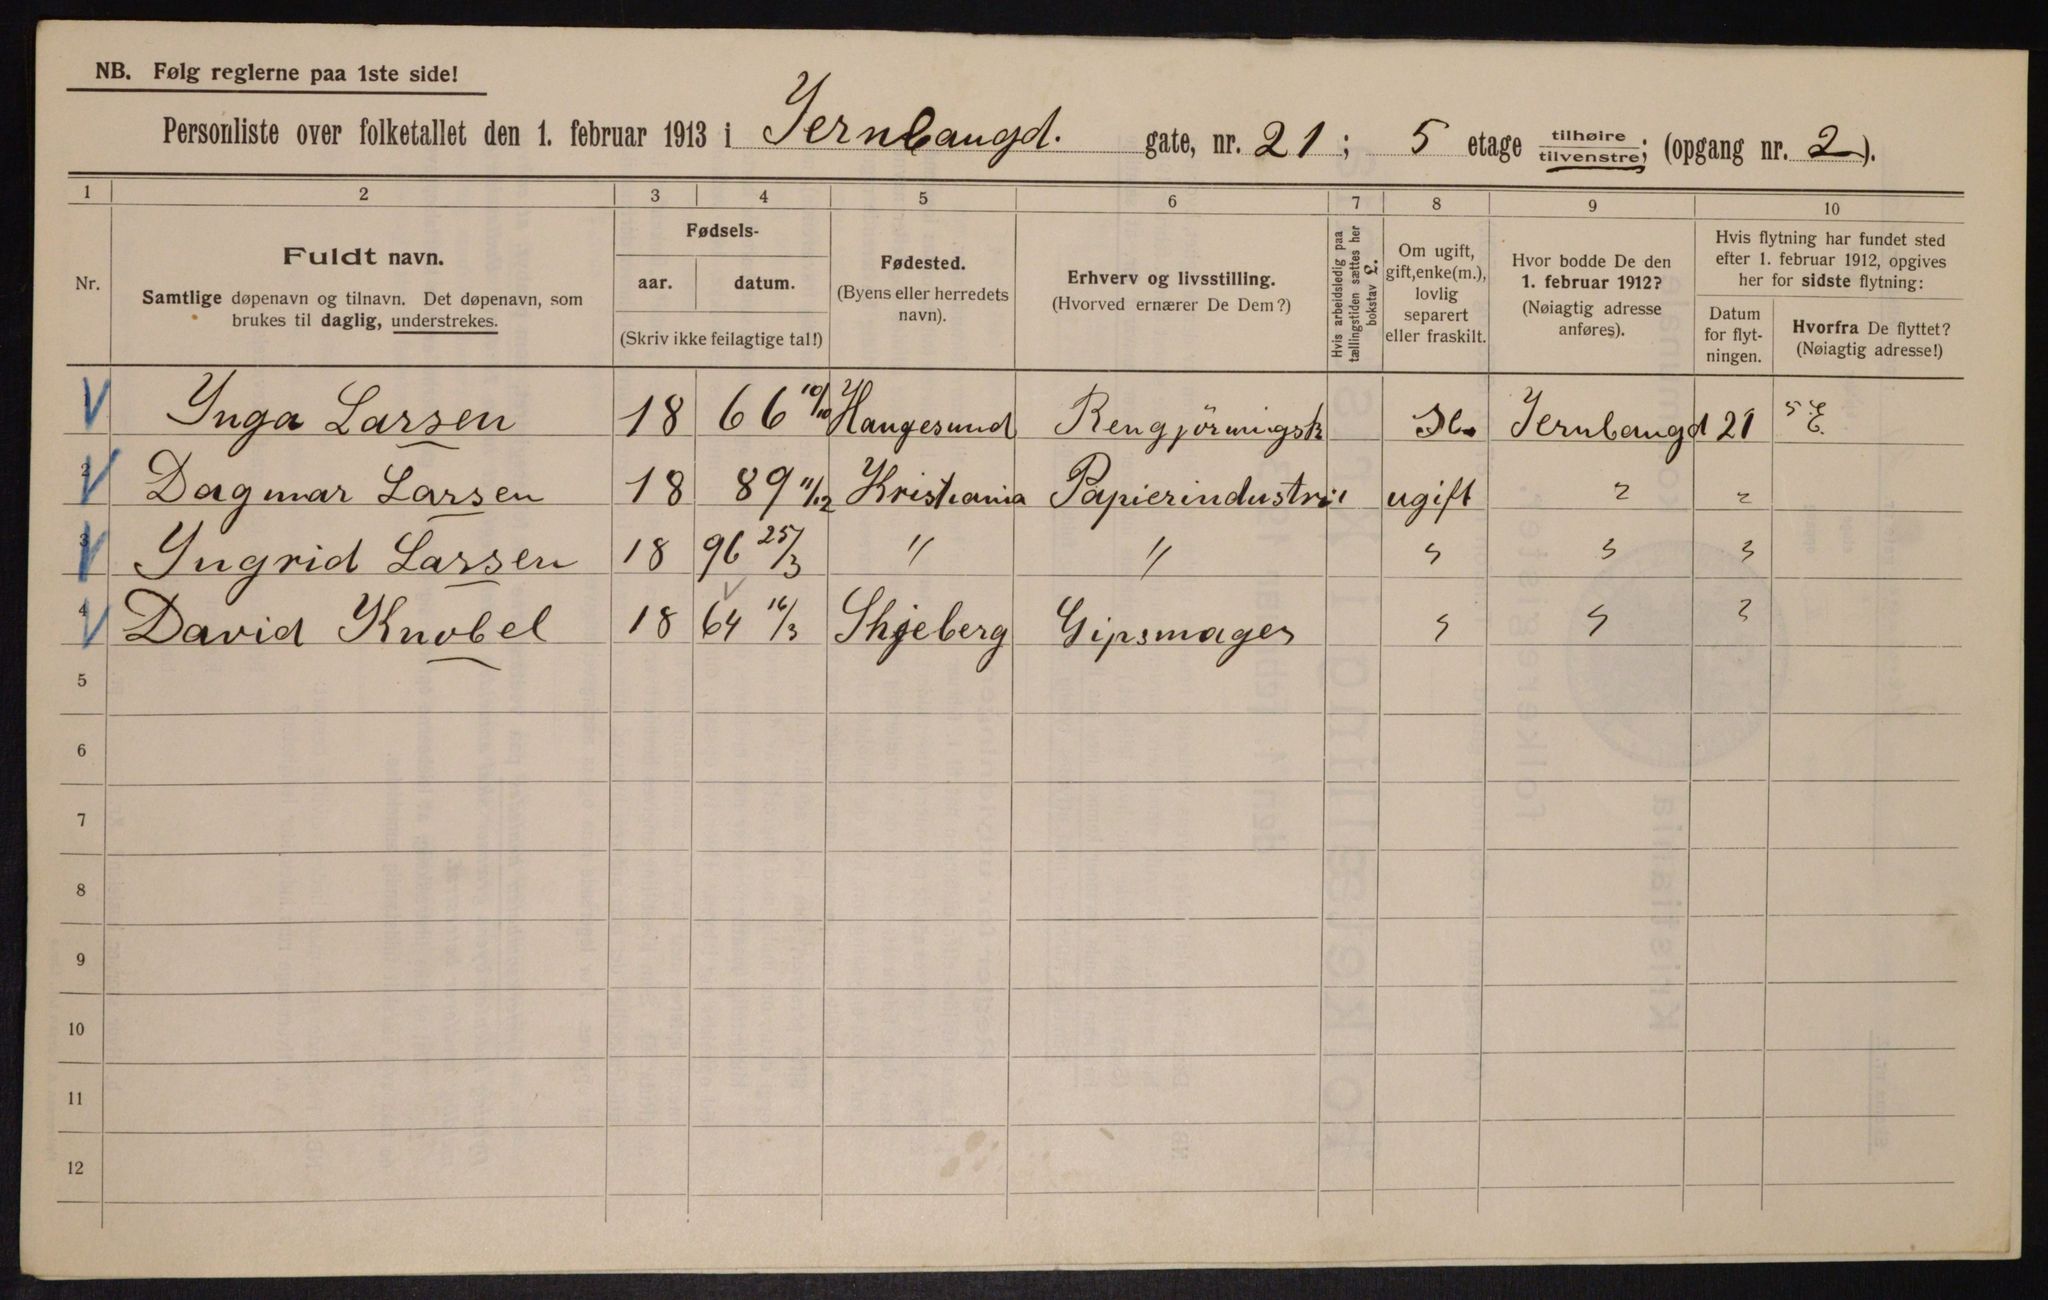 NB. Følg reglerne paa 1ste side!
Personliste over folketallet den 1. februar 1913 i Jernbaugd. gate, nr. 21; 5 etage tilhøire tilvenstre; (opgang nr. 2).
1 2 3 4 5 6 7 8 9 10
Nr.
Fuldt navn.
Samtlige døpenavn og tilnavn. Det døpenavn, som
brukes til daglig, understrekes.
Fødsels-
aar. datum.
(Skriv ikke feilagtige tal!)
Fødested.
(Byens eller herredets
navn).
Erhverv og livsstilling.
(Hvorved ernærer De Dem?)
Hvis arbeidsledig paa
tællingstiden sættes her
bokstav £.
Om ugift,
gift, enke(m.),
lovlig
separert
eller fraskilt.
Hvor bodde De den
1. februar 1912?
(Nøiagtig adresse
anføres).
Hvis flytning har fundet sted
efter 1. februar 1912, opgives
her for sidste flytning:
Datum
for flyt-
ningen.
Hvorfra De flyttet?
(Nøiagtig adresse!)
Ynga Larsen 18 66 10/10 Haugesund Rengjörningsk Jernbaugd 21 5 E.
2 Dagmar Larsen 18 89 11/12 Kristiania Papierindustri ugift " "
3 Yngrid Larsen 18 96 25/3 " " " " "
4 David Knobel 18 64 16/3 Skjeberg Gipsmager " " "
5
6
7
8
9
10
11
12